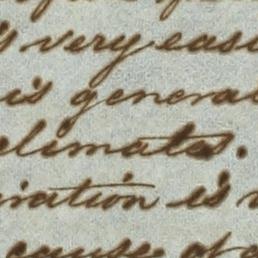 very easi
is genera
climates.
iration is
cause of